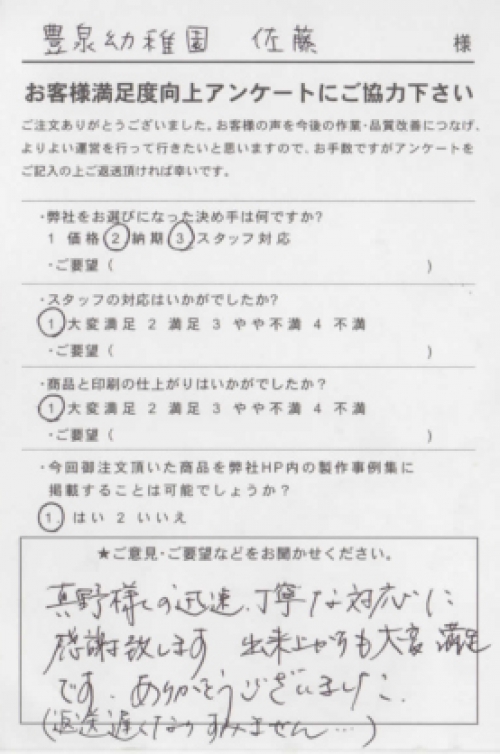 豊泉幼稚園 佐藤 様
お客様満足度向上アンケートにご協力下さい
ご注文ありがとうございました。お客様の声を今後の作業・品質改善につなげ、
よりよい運営を行って行きたいと思いますので、お手数ですがアンケートを
ご記入の上ご返送頂ければ幸いです。
・弊社をお選びになった決め手は何ですか?
1 価格 2 納期 3 スタッフ対応
・ご要望 ( )
・スタッフの対応はいかがでしたか?
1 大変満足 2 満足 3 やや不満 4 不満
・ご要望 ( )
・商品と印刷の仕上がりはいかがでしたか?
1 大変満足 2 満足 3 やや不満 4 不満
・ご要望 ( )
・今回御注文頂いた商品を弊社HP内の製作事例集に
掲載することは可能でしょうか?
1. はい 2 いいえ
★ご意見・ご要望などをお聞かせください。
真野様の迅速、丁寧な対応に
感謝致します 出来上がりも大変満足
です。ありがとうございました。
(返送遅くなりすみません…)